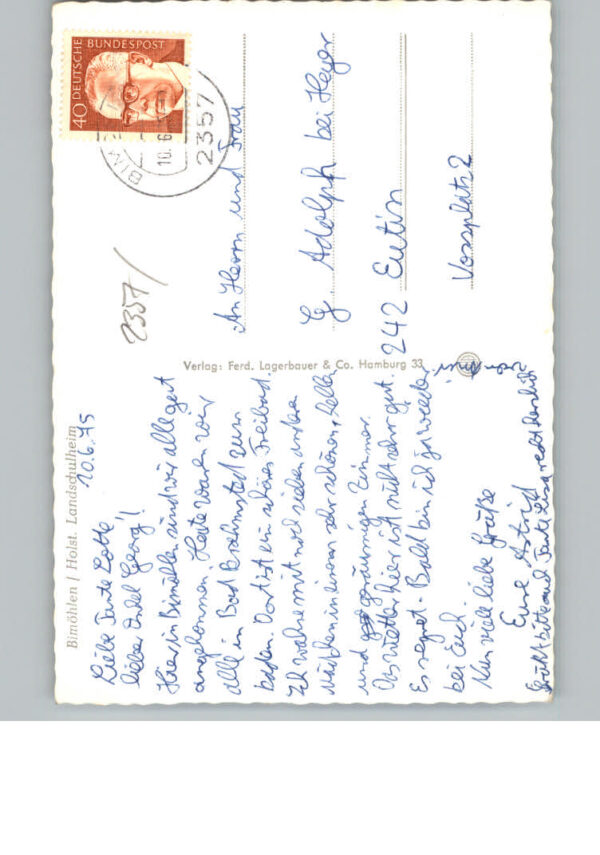 Bimöhlen / Holst. Landschulheim
10.6.75
Liebe Tante Lotte
lieber Onkel Georg!
Hier in Bimöhlen sind wir alle gut
angekommen. Heute waren wir
alle in Bad Bramstedt zum
baden. Dort ist ein schönes Freibad.
Ich wohne mit noch sieben andern
Mädchen in einem sehr schönen, hellen
und geräumigen Zimmer.
Das Wetter hier ist nicht sehr gut.
Es regnet. Bald bin ich ja wieder
bei Euch.
Nun viele liebe Grüße
Eure Astrid
Grüßt bitte auch Tante
Verlag: Ferd. Lagerbauer & Co. Hamburg 33
2357/
DEUTSCHE BUNDESPOST
40
BIM
10.6
2357
An Herrn und Frau
G. Adolph bei Heyer
242 Eutin
Vossplatz 2